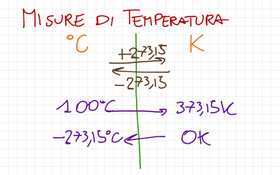 MISURE DI TEMPERATURA
°C K
+273,15
-273,15
100°C 373,15K
-273,15°C 0K